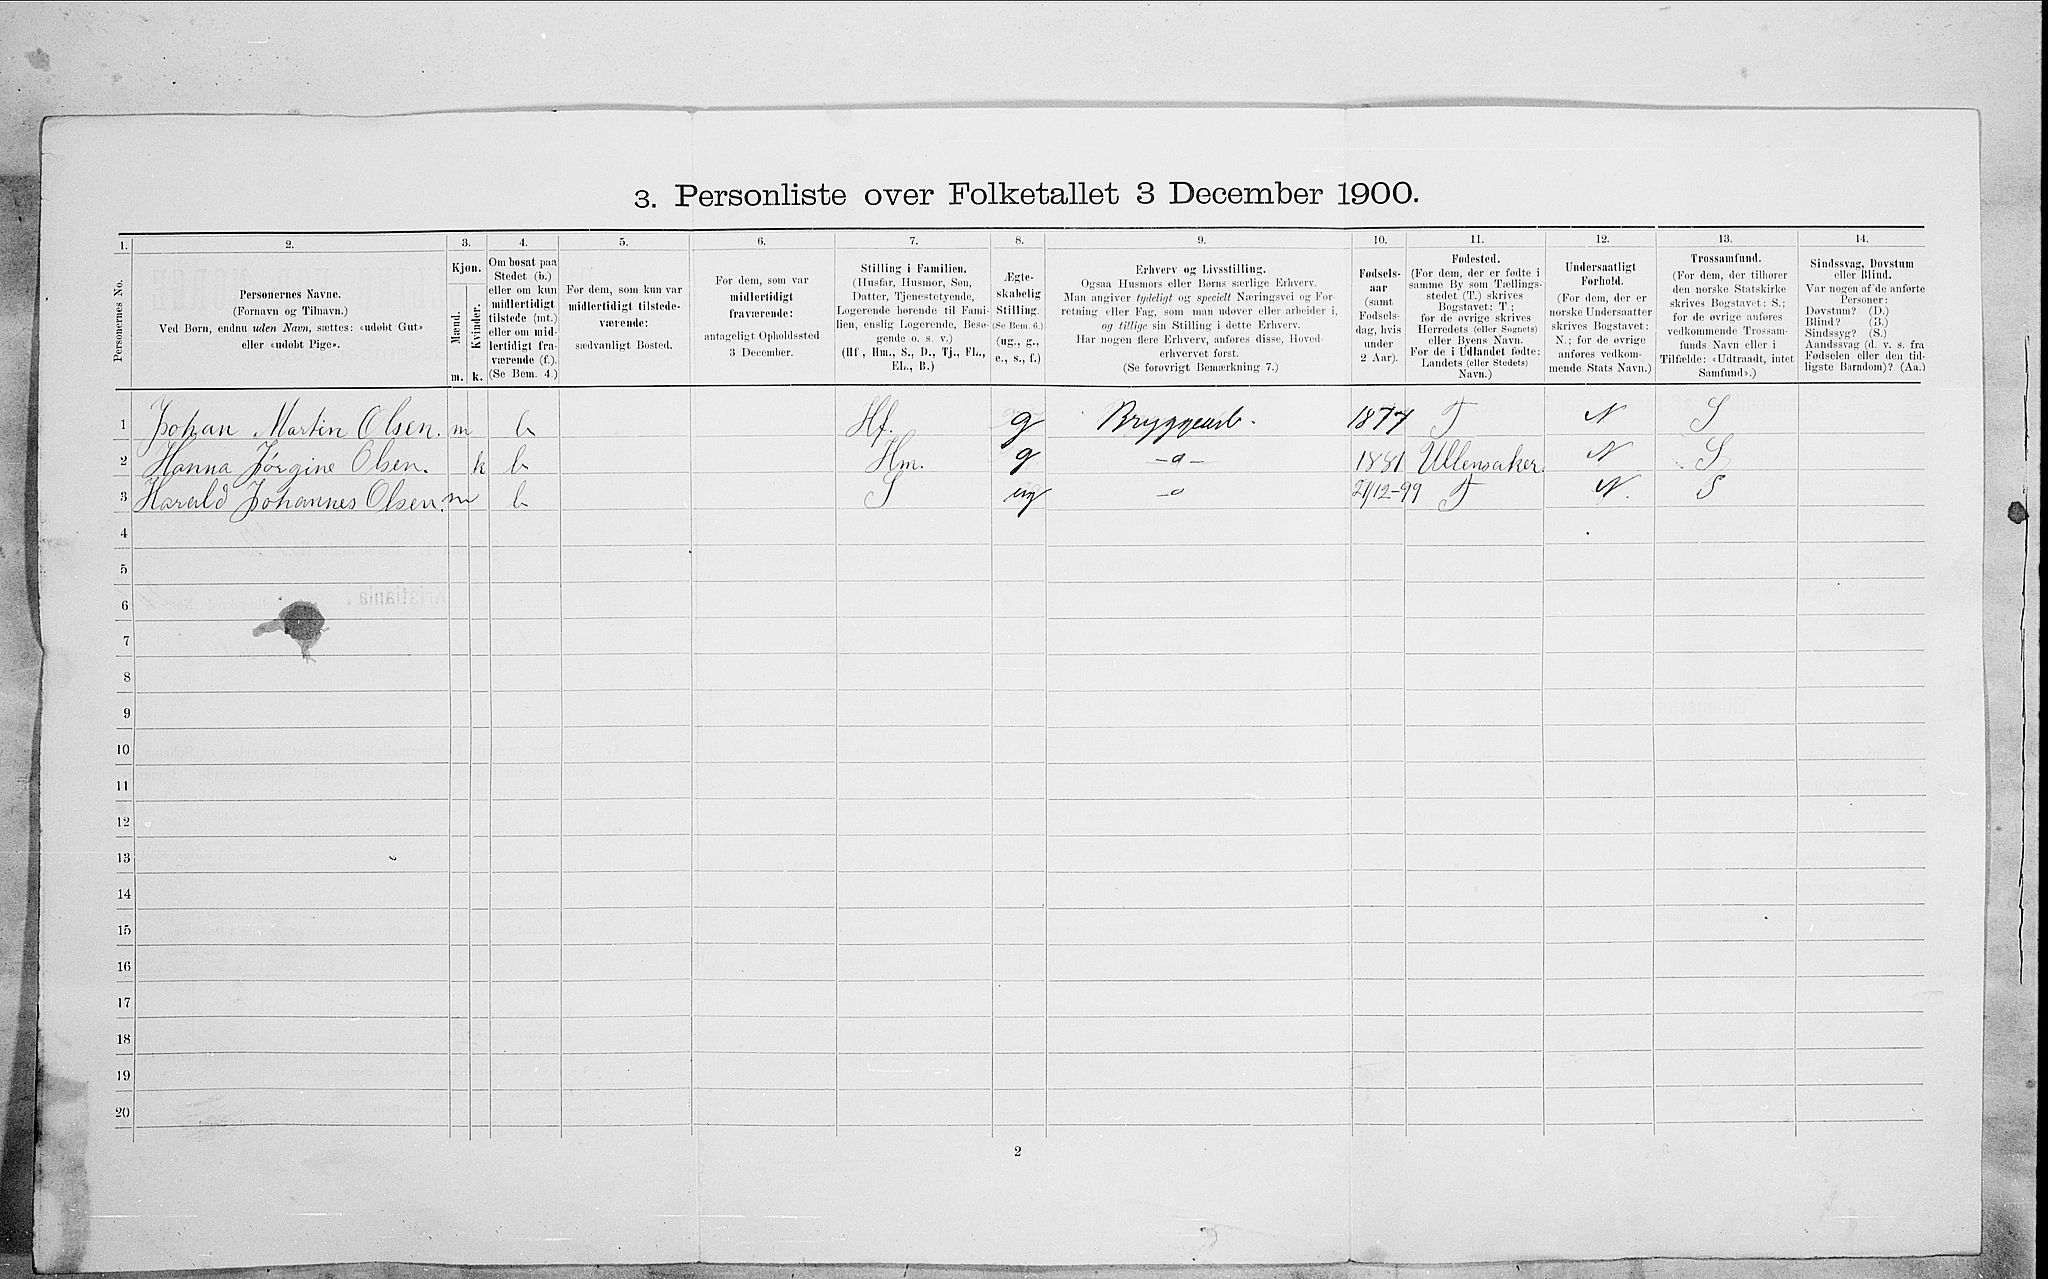 3. Personliste over Folketallet 3 December 1900.
1. 2. 3. 4. 5. 6. 7. 8. 9. 10. 11. 12. 13. 14.
Personernes No.
Personernes Navne.
(Fornavn og Tilnavn.)
Ved Børn, endnu uden Navn, sættes: «udøbt Gut»
eller «udøbt Pige».
Kjøn.
Mænd. Kvinder.
m. k.
Om bosat paa
Stedet (b.)
eller om kun
midlertidigt
tilstede (mt.)
eller om mid-
lertidigt fra-
værende (f.).
(Se Bem. 4.)
For dem, som kun var
midlertidigt tilstede-
værende:
sædvanligt Bosted.
For dem, som var
midlertidigt
fraværende:
antageligt Opholdssted
3 December.
Stilling i Familien.
(Husfar, Husmor, Søn,
Datter, Tjenestetyende,
Logerende hørende til Fami-
lien, enslig Logerende, Besø-
gende o. s. v.)
(Hf., Hm., S., D., Tj., FL.,
EL., B.)
Ægte-
skabelig
Stilling.
(Se Bem. 6.)
(ug., g.,
e., s., f.)
Erhverv og Livsstilling.
Ogsaa Husmors eller Børns særlige Erhverv.
Man angiver tydeligt og specielt Næringsvei og For-
retning eller Fag, som man udøver eller arbeider i,
og tillige sin Stilling i dette Erhverv.
Har nogen flere Erhverv, anføres disse, Hoved-
erhvervet først.
(Se forøvrigt Bemærkning 7.)
Fødsels-
aar
(samt
Fødsels-
dag, hvis
under
2 Aar).
Fødested.
(For dem, der er fødte i
samme By som Tællings-
stedet (T.) skrives
Bogstavet: T;
for de øvrige skrives
Herredets (eller Sognets)
eller Byens Navn.
For de i Udlandet fødte:
Landets (eller Stedets)
Navn.)
Undersaatligt
Forhold.
(For dem, der er
norske Undersaatter
skrives Bogstavet:
N.; for de øvrige
anføres vedkom-
mende Stats Navn.)
Trossamfund.
(For dem, der tilhører
den norske Statskirke
skrives Bogstavet: S.;
for de øvrige anføres
vedkommende Trossam-
funds Navn eller i
Tilfælde: «Udtraadt, intet
Samfund».)
Sindssvag, Døvstum
eller Blind.
Var nogen af de anførte
Personer:
Døvstum? (D.)
Blind? (B.)
Sindssyg? (S.)
Aandssvag (d. v. s. fra
Fødselen eller den tid-
ligste Barndom)? (Aa.)
1 Johan Martin Olsen. m b Hf. g Bryggearb. 1877 T N S
2 Hanna Jørgine Olsen. k b Hm. g -"- 1881 Ullensaker. N S
3 Harald Johannes Olsen. m b S ug -" 21/12-99 T N. S
4
5
6
7
8
9
10
11
12
13
14
15
16
17
18
19
20
2